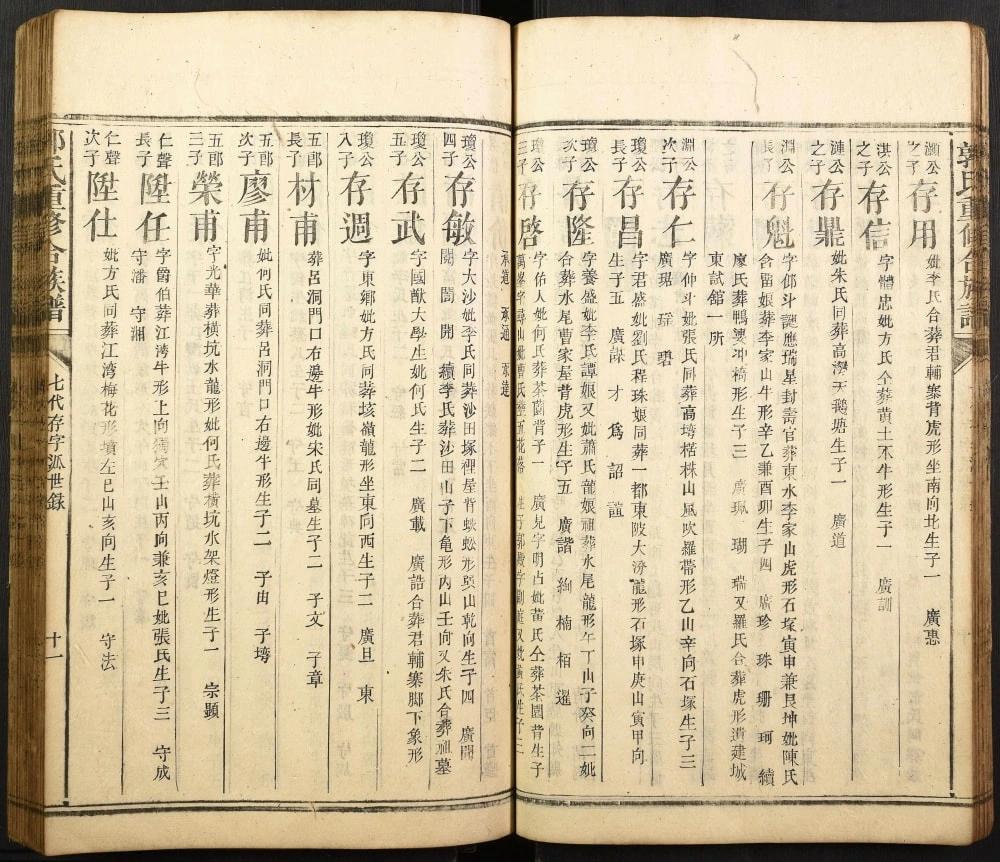 郭氏重修合族譜
淵公之子 存用 妣李氏合葬君輔寨背虎形坐南向北生子一 廣惠
洪公之子 存信 字體忠妣方氏仝葬黃土不牛形生子一 廣訓
漣公之子 存鼎 妣朱氏同葬高㙟天鵝塘生子一 廣道
淵公長子 存魁 字仰斗謚應瑞星封壽官葬東水李家山虎形石塜寅申兼艮坤妣陳氏
含留娘葬李家山牛形辛乙兼酉卯生子四 廣珍 珠 珊 珂 續
廖氏葬鴨婆冲橋形生子三 廣珮 瑚 瑞又羅氏合葬虎形遺建城
東試館一所
淵公次子 存仁 字仰斗妣張氏同葬高塆楛株山風吹羅帶形乙山辛向石塚生子三
廣琚 璍 碧
瓊公長子 存昌 字君盛妣劉氏程珠娘同葬一都東陂大塝龍形石塚申庚山寅甲向
生子五 廣謀 才 爲 詔 誼
瓊公次子 存隆 字養盛妣李氏譚娘又妣蕭氏龍娘祖葬水尾龍形午丁山子癸向二妣
合葬水尾曹家屋背虎形生子五 廣諧 絢 楠 栢 暹
瓊公三子 存啓 字佑人妣何氏葬茶園背子一 廣見字明占妣黃氏仝葬茶園背生子
承道 承通 承達
瓊公四子 存敏 字大沙妣李氏同葬沙田塚裡屋背蜈蚣形巽山乾向生子四 廣閣
閙 誾 開 續李氏葬沙田山子下龜形內山壬向又朱氏合葬祖墓
瓊公五子 存武 字國猷大學生妣何氏生子二 廣載 廣誥合葬君輔寨脚下象形
瓊公八子 存週 字東鄉妣方氏同葬垓嶺龍形坐東向西生子二 廣旦 東
五郎長子 材甫 葬呂洞門口右邊牛形妣宋氏同墓生子二 子文 子章
五郎次子 廖甫 妣何氏同葬呂洞門口右邊牛形生子二 子由 子塆
五郎三子 榮甫 字光華葬橫坑水龍形妣何氏葬橫坑水架燈形生子一 宗顯
仁聲長子 陞任 字爵伯葬江湾牛形上向獨穴壬山丙向兼亥巳妣張氏生子三 守成
守潘 守湘
仁聲次子 陞仕 妣方氏同葬江湾梅花形墳左巳山亥向生子一 守法
郭氏重修合族譜 七代存字派世録 十一